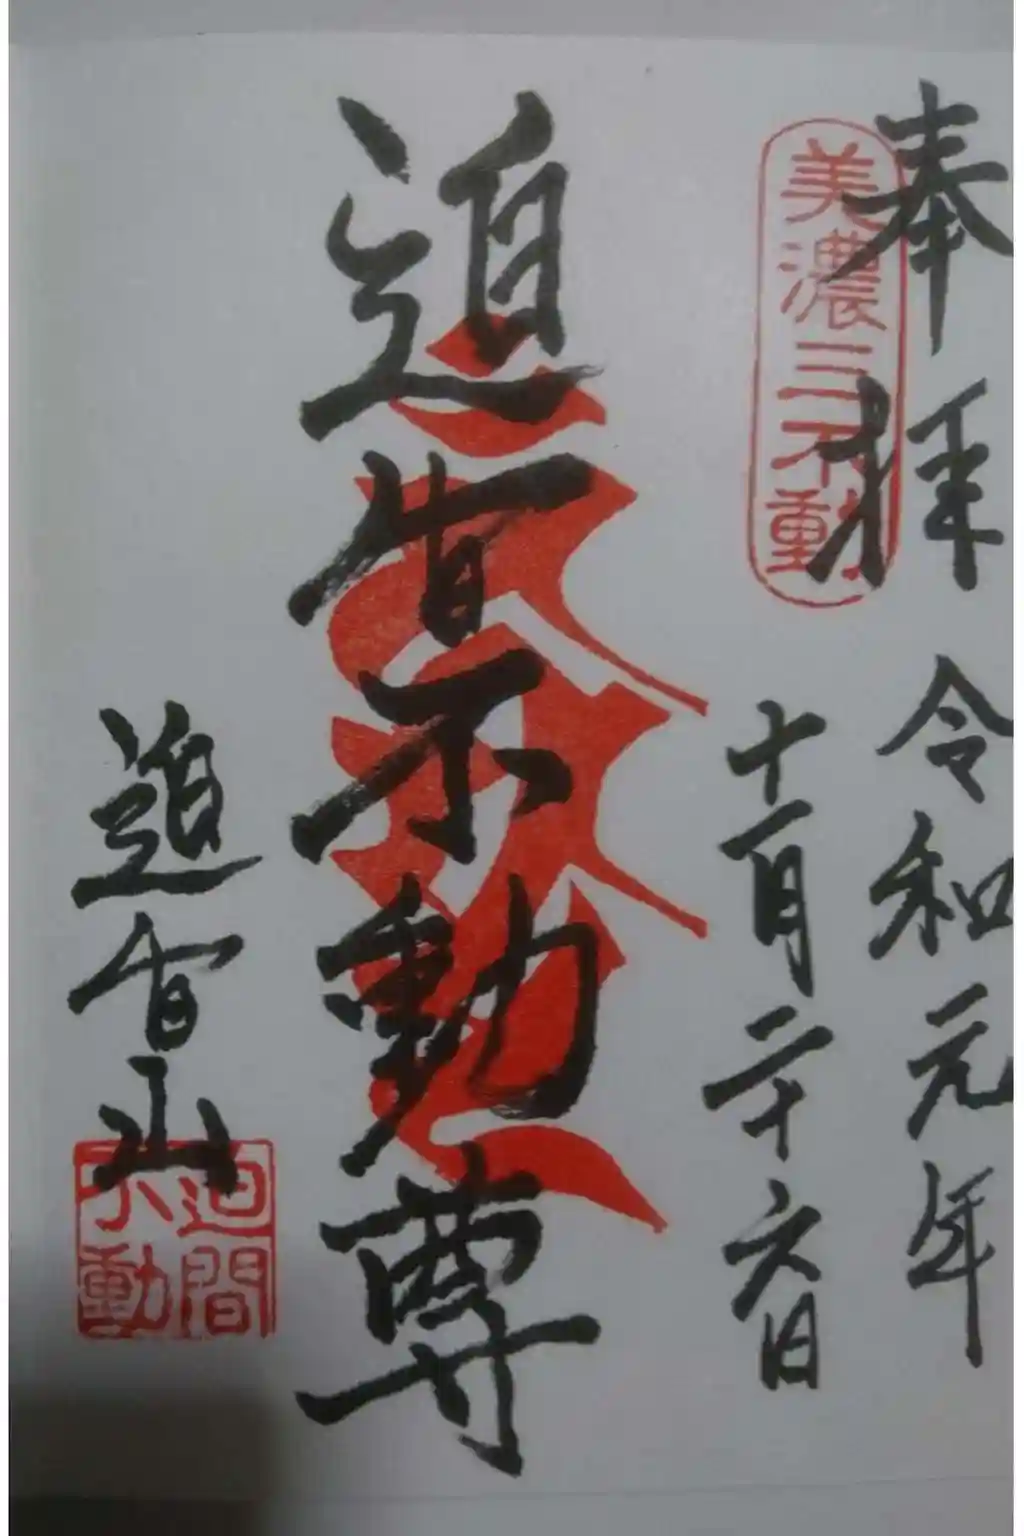 奉拝 令和元年
十一月二十六日
美濃三不動
迫間不動尊
迫間山
迫間
不動